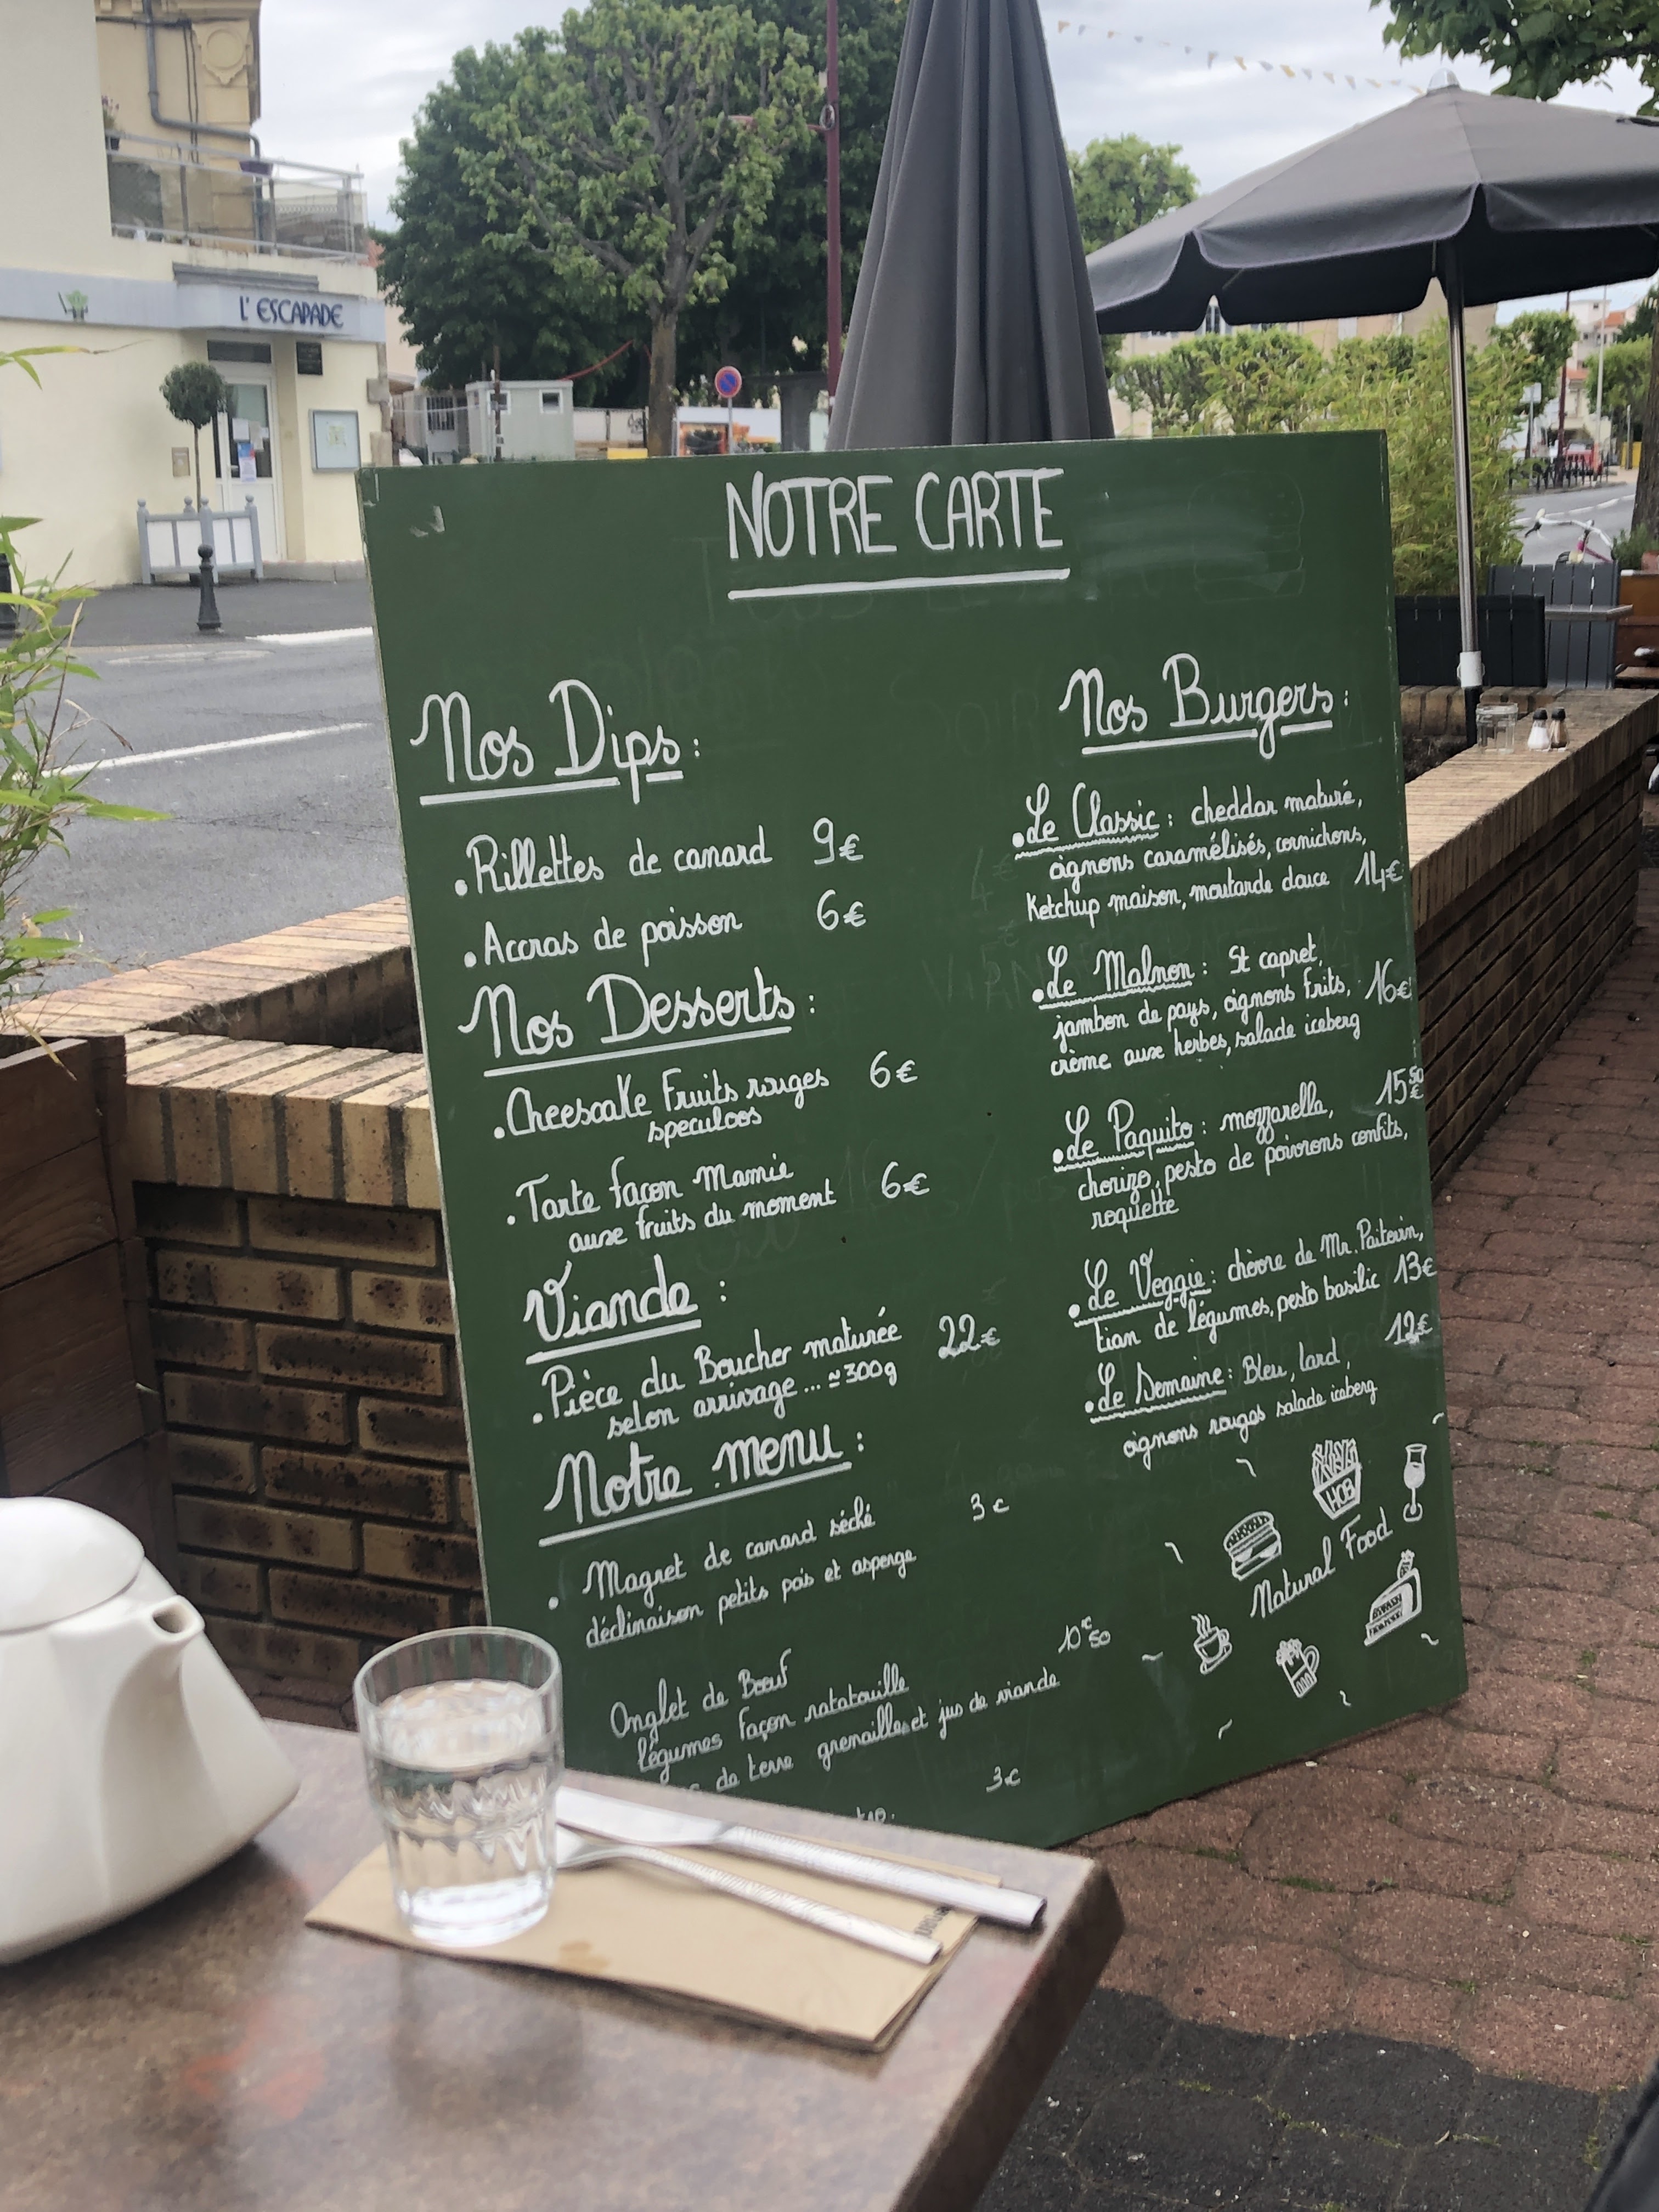 L' ESCAPADE
NOTRE CARTE
Nos Dips :
• Rillettes de canard 9€
• Accras de poisson 6€
Nos Desserts :
• Cheescake Fruits rouges 6€
speculoos
• Tarte façon Mamie
aux fruits du moment 6€
Viande :
• Pièce du Boucher maturée 22€
selon arrivage ... ≃300g
Notre menu :
• Magret de canard séché 3€
déclinaison petits pois et asperge
10€50
Onglet de Bœuf
légumes façon ratatouille
de terre grenailles et jus de viande
3€
Nos Burgers :
• Le Classic : cheddar maturé,
oignons caramélisés, cornichons,
Ketchup maison, moutarde douce 14€
• Le Malnon : St capret,
jambon de pays, oignons frits, 16€
crème aux herbes, salade iceberg
• Le Paquito : mozzarella, 15€50
chorizo, pesto de poivrons confits,
roquette
• Le Veggie : chèvre de Mr.
tian de légumes, pesto basilic 13€
• Le Semaine : Bleu, lard, 12€
oignons rouges salade iceberg
HOB
Natural Food